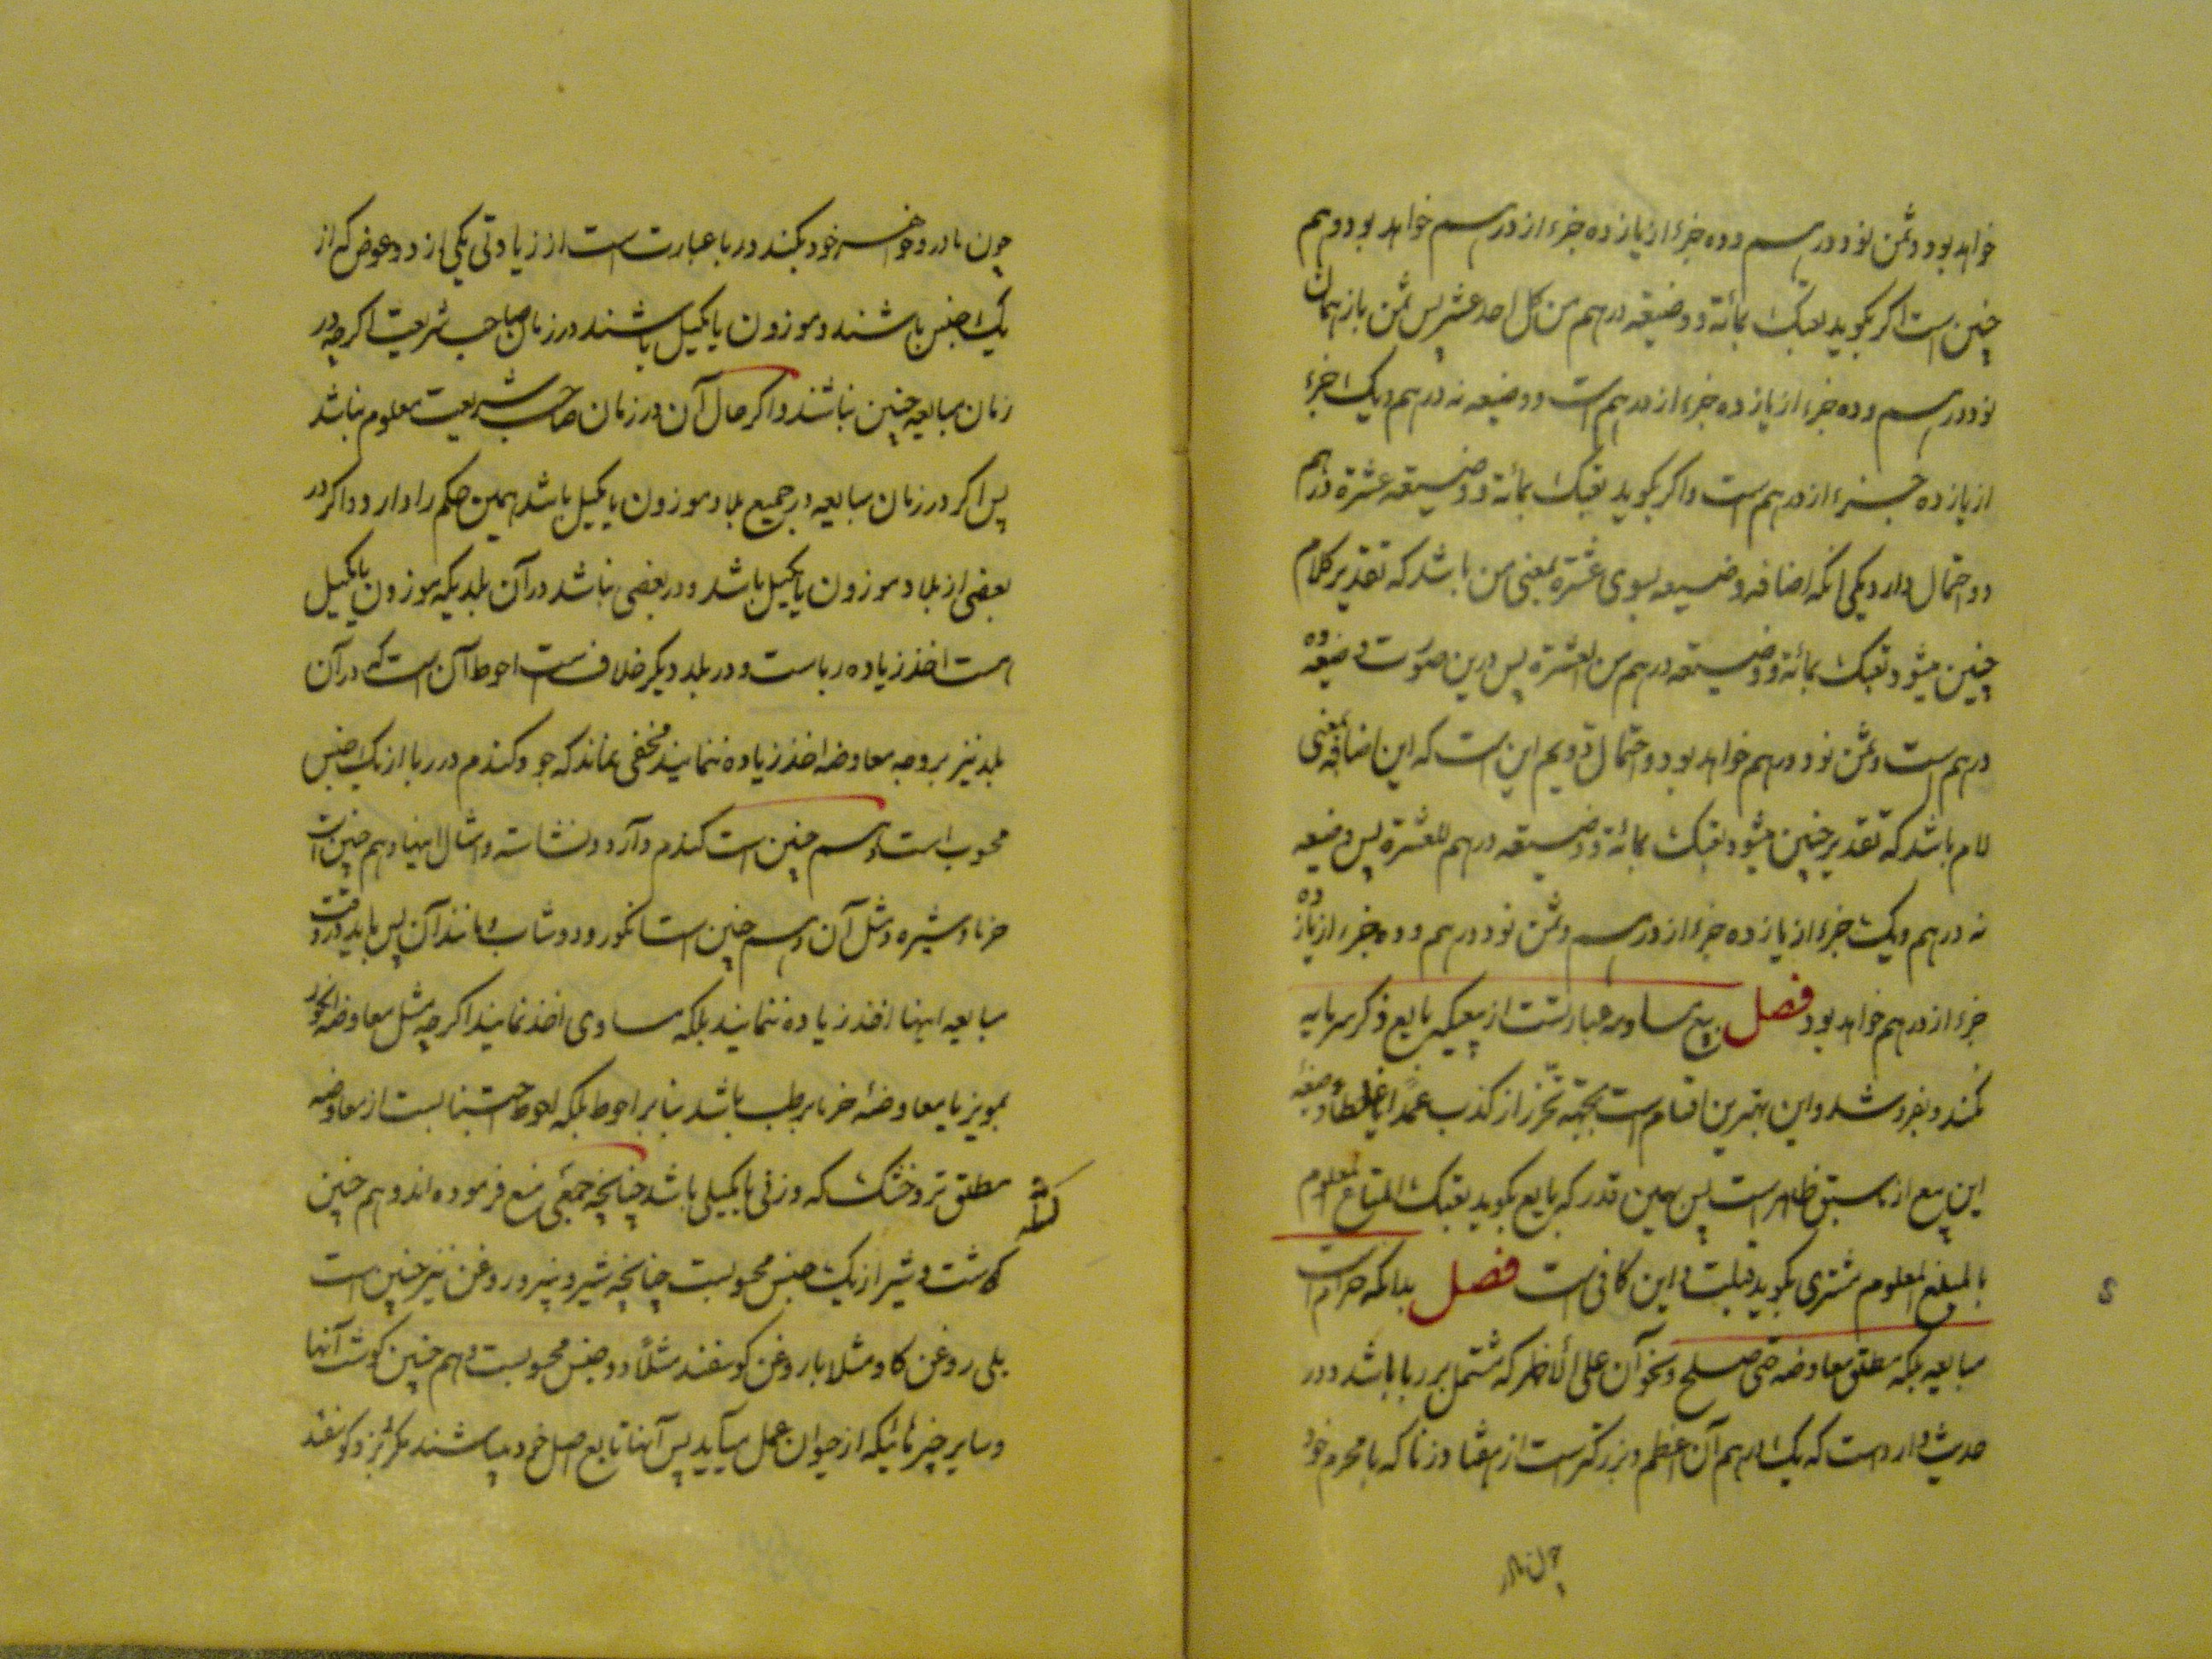 خواهد بود و ثمن نود درهم و ده جزء از یازده جزء از درهم خواهد بود و هم
چنین است اگر بگوید بعتک بمائة و وضیعه درهم من کل احد عشر پس ثمن باز همان
نود درهم و ده جزء از یازده جزء از درهم است و وضیعه نه درهم و یک جزء
از یازده جزء از درهم است و اگر بگوید بعتک بمائة و وضیعه عشرة درهم
دو احتمال دارد یکی آنکه اضافه وضیعه بسوی عشرة بمعنی من باشد که تقدیر کلام
چنین میشود بعتک بمائة و وضیعه درهم من العشرة پس درین صورت وضیعه ده
درهم است و ثمن نود درهم خواهد بود و احتمال دویم این است که این اضافه بمعنی
لام باشد که تقدیر چنین میشود بعتک بمائة و وضیعه درهم للعشرة پس وضیعه
نه درهم و یک جزء از یازده جزء از درهم و ثمن نود درهم و ده جزء از یازده
جزء از درهم خواهد بود فصل بیع مساومه عبارتست از بیعیکه بایع ذکر سرمایه
نکند و بفروشد و این بهترین اقسام است بجهة تحرز از کذب عمداً یا غلطاً و صیغه
این بیع از ما سبق ظاهر است پس همین قدر که بایع بگوید بعتک المتاع المعلوم
بالمبلغ المعلوم مشتری بگوید قبلت و این کافی است فصل بدانکه حرام است
مبایعه بلکه مطلق معاوضه حتی صلح و نحو آن علی الأظهر که مشتمل بر ربا باشد و در
حدیث وارد است که یک درهم آن اعظم و بزرگتر است از هفتاد زنا که با محرم خود
چون مادر
چون مادر و خواهر خود بکند و ربا عبارت است از زیادتی یکی از دو عوض که از
یک جنس باشند و موزون یا مکیل باشند در زمان صاحب شریعت اگرچه در
زمان مبایعه چنین نباشند و اگر حال آن در زمان صاحب شریعت معلوم نباشد
پس اگر در زمان مبایعه در جمیع بلاد موزون یا مکیل باشد همین حکم را دارد و اگر در
بعضی از بلاد موزون یا مکیل باشد و در بعضی نباشد در آن بلدیکه موزون یا مکیل
است اخذ زیاده رباست و در بلد دیگر خلاف است احوط آن است که در آن
بلد نیز بر وجه معاوضه اخذ زیاده ننمایند مخفی نماند که جو و گندم در ربا از یک جنس
محسوب است و هم چنین است گندم و آرد و نشاسته و امثال اینها و هم چنین است
خرما و شیره و مثل آن و هم چنین است انگور و دوشاب و مانند آن پس باید در وقت
مبایعه اینها اخذ زیاده ننمایند بلکه مساوی اخذ نمایند اگرچه مثل معاوضه انگور
بمویز یا معاوضه خرما برطب باشد بنا بر احوط بلکه احوط اجتناب است از معاوضه
مطلق تر و خشک که وزنی یا مکیلی باشد چنانچه جمعی منع فرموده اند و هم چنین
گوشت و شیر از یک جنس محسوبست چنانچه شیر و پنیر و روغن نیز چنین است
بلی روغن گاو مثلا با روغن گوسفند مثلاً دو جنس محسوبست و هم چنین گوشت آنها
و سایر چیزهائیکه از حیوان بعمل میآید پس آنها تابع اصل خود میباشند مگر بز و گوسفند